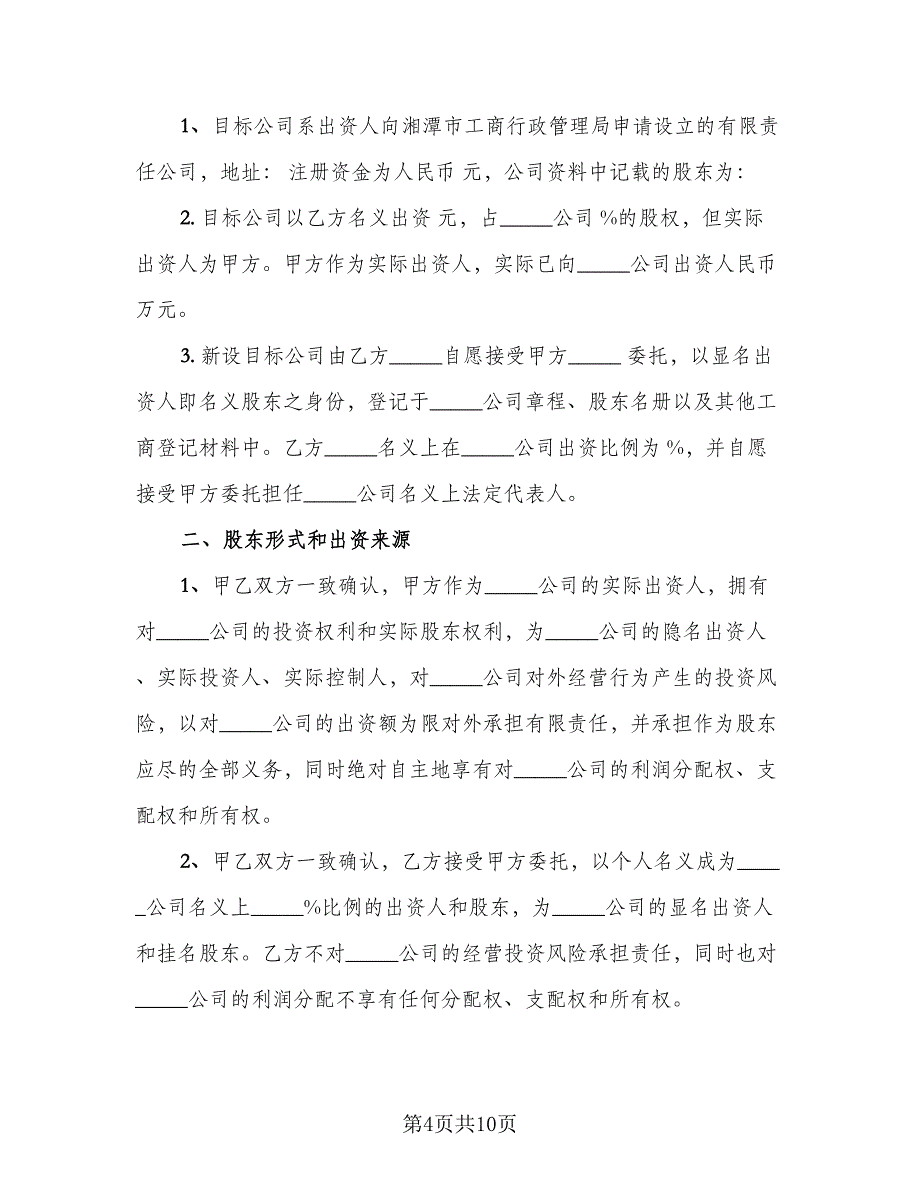 1、目标公司系出资人向湘潭市工商行政管理局申请设立的有限责
任公司，地址： 注册资金为人民币 元，公司资料中记载的股东为：
2. 目标公司以乙方名义出资 元，占_____公司 %的股权，但实际
出资人为甲方。甲方作为实际出资人，实际已向_____公司出资人民币
万元。
3. 新设目标公司由乙方_____自愿接受甲方_____ 委托，以显名出
资人即名义股东之身份，登记于_____公司章程、股东名册以及其他工
商登记材料中。乙方_____名义上在_____公司出资比例为 %，并自愿
接受甲方委托担任_____公司名义上法定代表人。
二、股东形式和出资来源
1、甲乙双方一致确认，甲方作为_____公司的实际出资人，拥有
对_____公司的投资权利和实际股东权利，为_____公司的隐名出资人
、实际投资人、实际控制人，对_____公司对外经营行为产生的投资风
险，以对_____公司的出资额为限对外承担有限责任，并承担作为股东
应尽的全部义务，同时绝对自主地享有对_____公司的利润分配权、支
配权和所有权。
2、甲乙双方一致确认，乙方接受甲方委托，以个人名义成为____
_公司名义上_____%比例的出资人和股东，为_____公司的显名出资人
和挂名股东。乙方不对_____公司的经营投资风险承担责任，同时也对
_____公司的利润分配不享有任何分配权、支配权和所有权。
第4页共10页